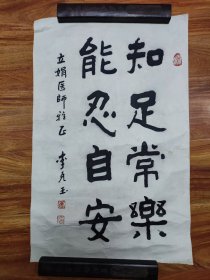 知足常樂
能忍自安
立娟医師雅正
李